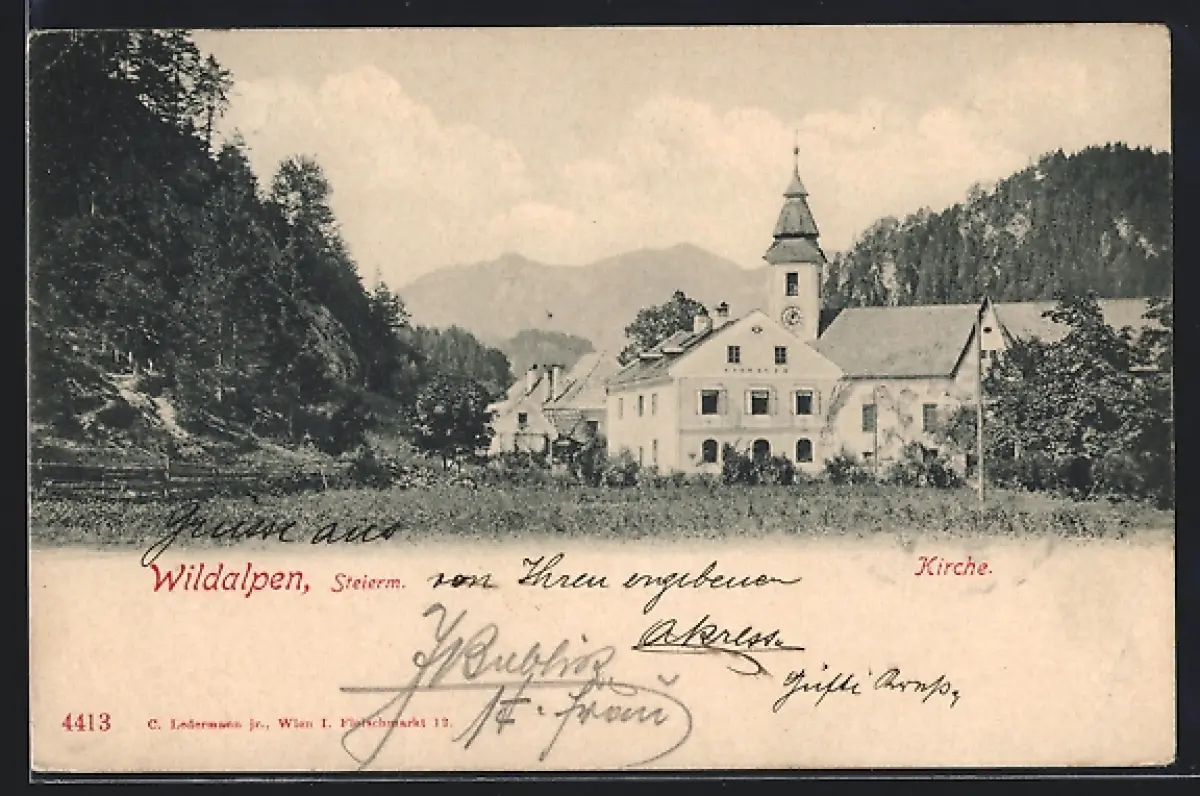 Grusse aus
Wildalpen, Steierm. von Ihren ergebenen
Kirche.
AKress
Gusti Kreß,
& Frau
4413 C. Ledermann jr., Wien I. Fleischmarkt 12.